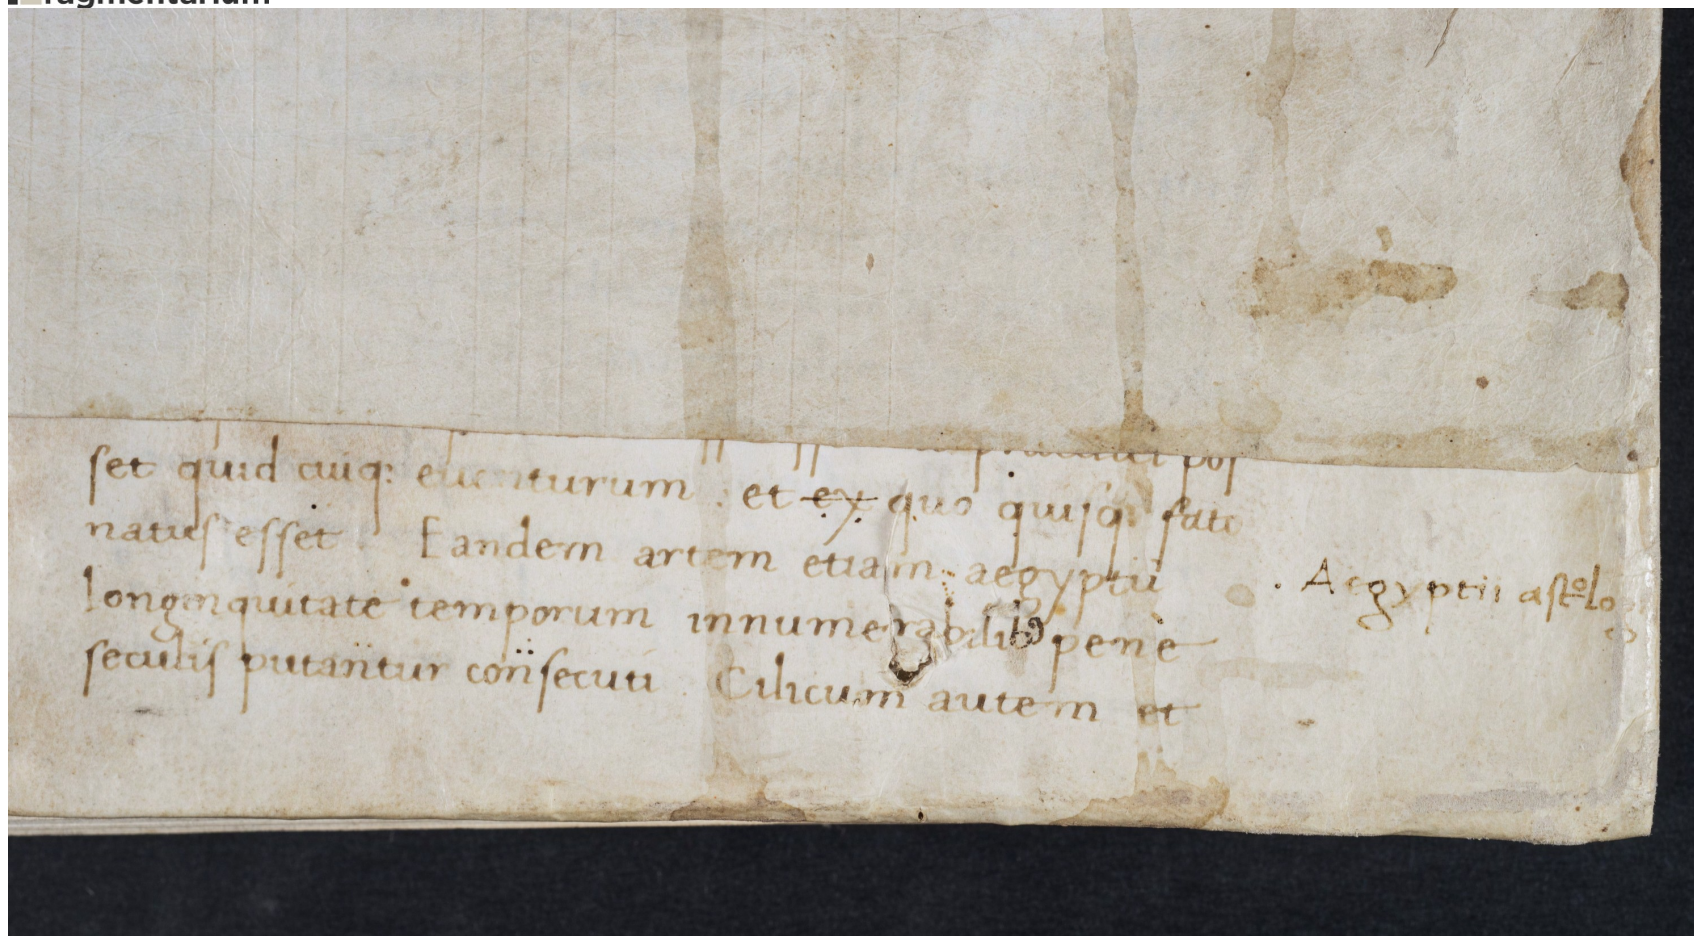 ragmentarium
pos
set quid cuiq: euenturum . et ex quo quisq: fato
natus esset . Eandem artem etiam aegyptii
longinquitate temporum innumerabilib; pene
seculis putantur consecuti . Cilicum autem et
. Aegyptii astolo